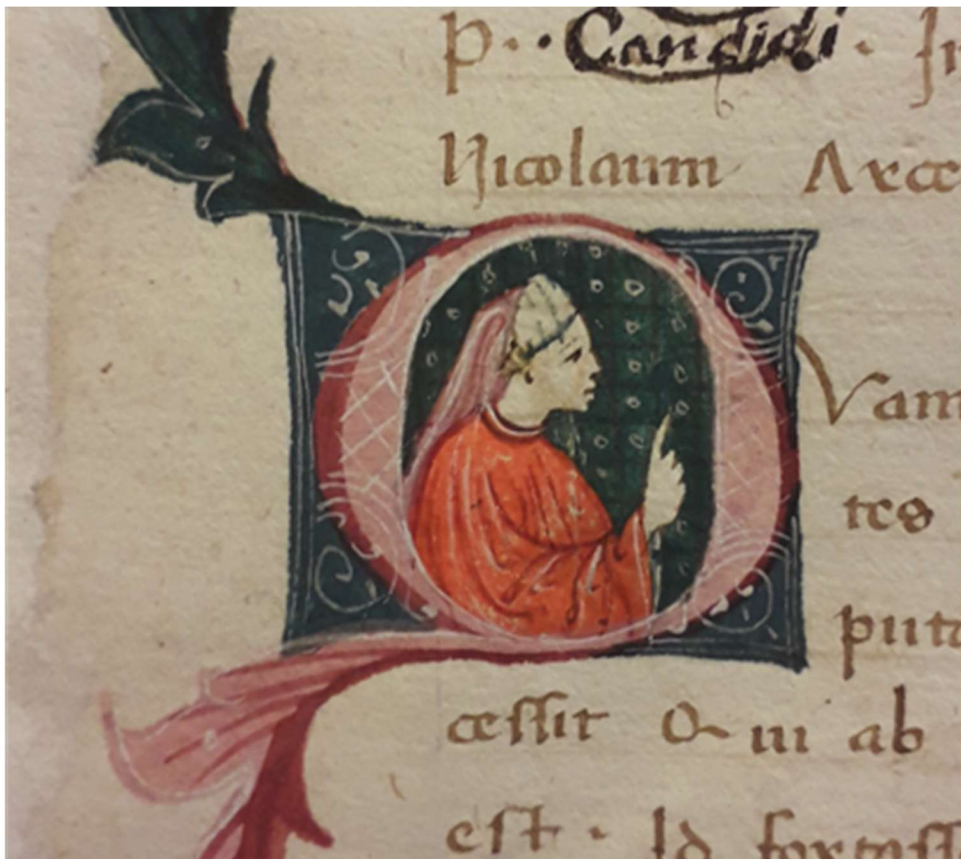 P. . Candidi . In
Nicolaum Arce
Vam
tes
puta
cessit & ui ab
est . Id fortass